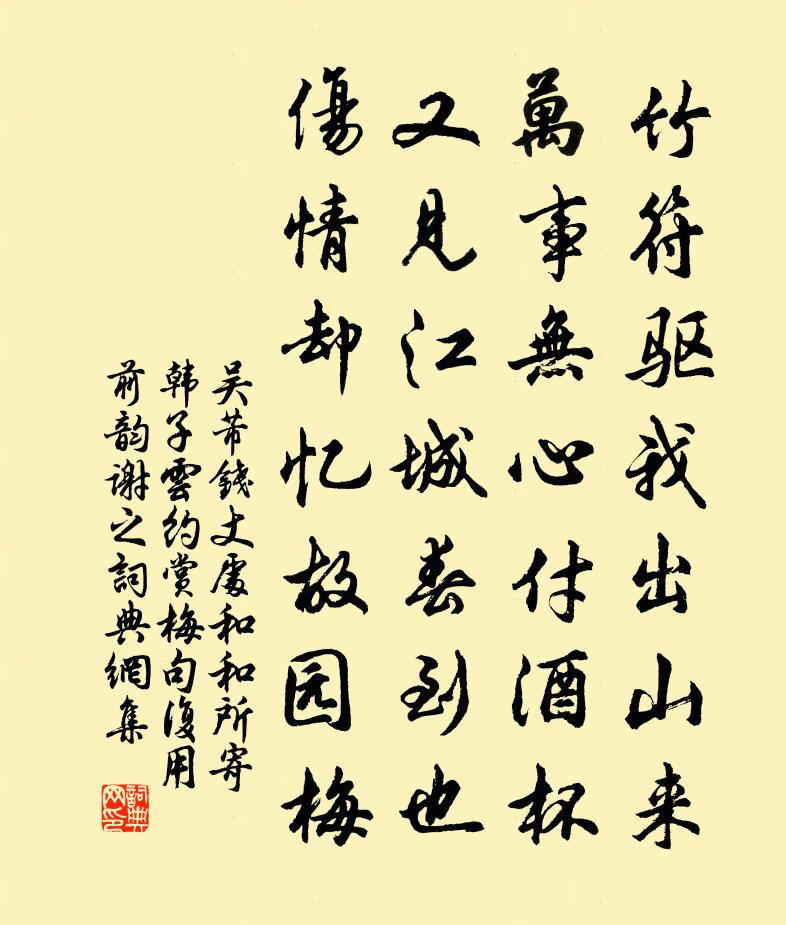 竹符驱我出山来
萬事無心付酒杯
又見江城春到也
傷情却忆故园梅
吴芾錢丈處和和所寄
韩子雲約赏梅句復用
前韵谢之詞典網集
詞典
网印